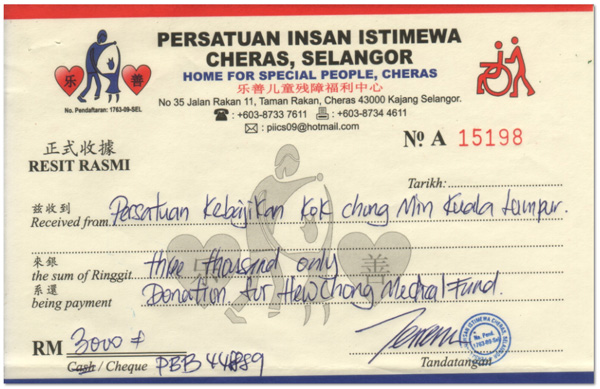 PERSATUAN INSAN ISTIMEWA
CHERAS, SELANGOR
HOME FOR SPECIAL PEOPLE, CHERAS
乐善儿童残障福利中心
No 35 Jalan Rakan 11, Taman Rakan, Cheras 43000 Kajang Selangor.
: +603-8733 7611 : +603-8734 4611
: piics09@hotmail.com
乐 善
No. Pendaftaran: 1763-09-SEL
正式收據
RESIT RASMI
No A 15198
Tarikh:
兹收到
Received from Persatuan Kebajikan Kok Chong Min Kuala Lumpur.
來銀
the sum of Ringgit three thousand only
系還
being payment Donation for Hew Chong Medical Fund.
乐 善
RM 3000
Cash / Cheque PBB
Tandatangan